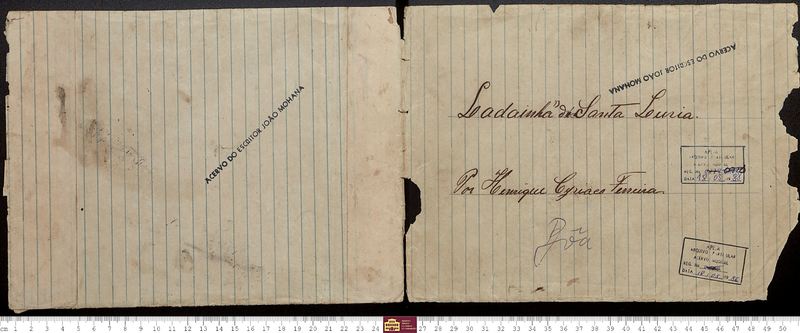 ACERVO DO ESCRITOR JOÃO MOHANA
ACERVO DO ESCRITOR JOÃO MOHANA
Ladainha de Santa Luzia.
Por Henrique Cyriaco Ferreira
Bôa
ACERVO
REG. No.
DATA
ACERVO
REG. No.
DATA
cm 1 2 3 4 5 6 7 8 9 10 11 12 13 14 15 16 17 18 19 20 21 22 23 24 27 28 29 30 31 32 33 34 35 36 37 38 39 40 41 42 43 44 45 46 47 48 49 50